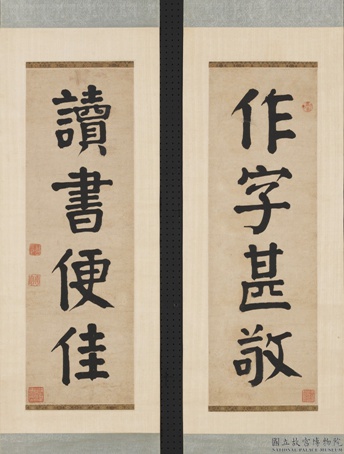 作字甚敬
讀書便佳
國立故宮博物院
NATIONAL PALACE MUSEUM